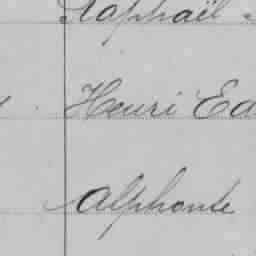 Raphaël
Henri Ed
Alphonse